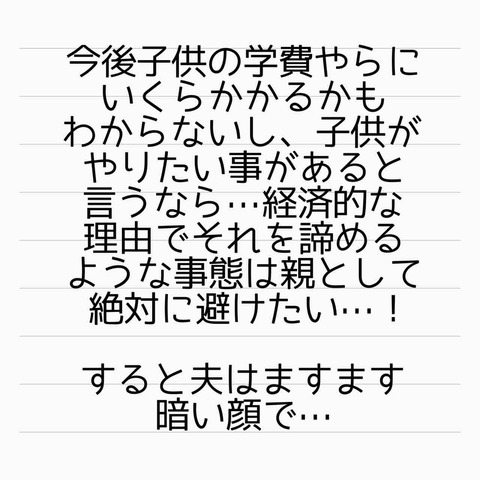 今後子供の学費やらに
いくらかかるかも
わからないし、子供が
やりたい事があると
言うなら…経済的な
理由でそれを諦める
ような事態は親として
絶対に避けたい…！
すると夫はますます
暗い顔で…